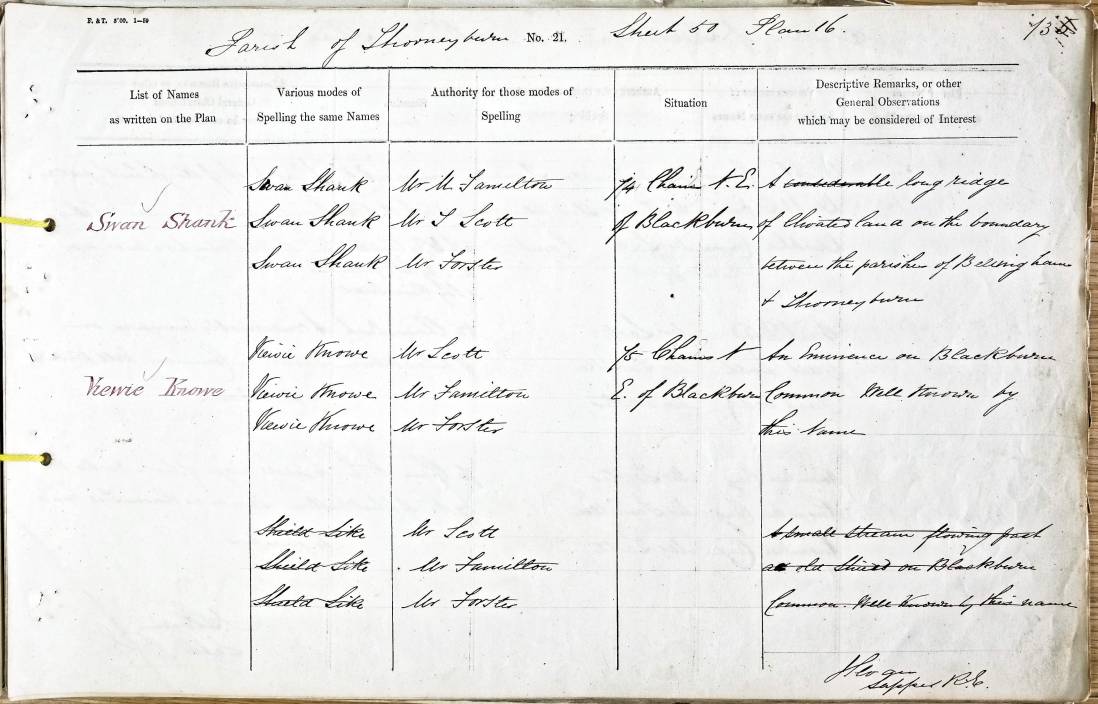 F. & T. 5'00. 1–59
Parish of Thorneyburn No. 21. Sheet 50 Plan 16. 73
List of Names
as written on the Plan
Various modes of
Spelling the same Names
Authority for those modes of
Spelling
Situation
Descriptive Remarks, or other
General Observations
which may be considered of Interest
Swan Shank
Swan Shank Mr M Hamilton 74 Chains N.E. A considerable long ridge
Swan Shank Mr T Scott of Blackburn of Elivated land on the boundary
Swan Shank Mr Forster between the parishes of Bellingham
& Thorneyburn
Viewie Knowe
Viewie Knowe Mr Scott 75 Chains N An Eminence on Blackburn
Viewie Knowe Mr Hamilton E. of Blackburn Common Well Known by
Viewie Knowe Mr Forster this Name
Shield Sike Mr Scott A small stream flowing past
Shield Sike Mr Hamilton old Shield on Blackburn
Shield Sike Mr Forster Common. Well Known by this name
Sapper R.E.